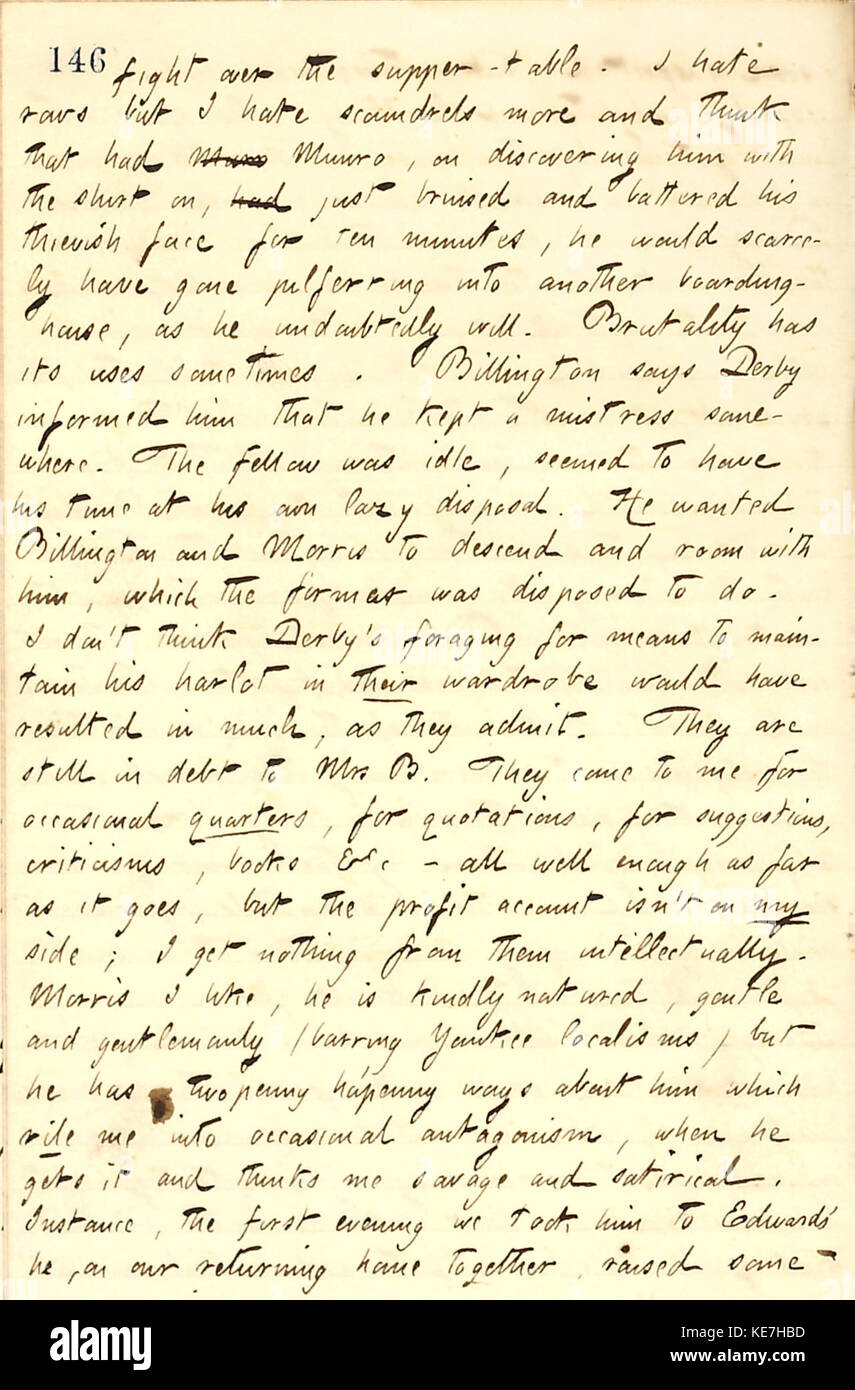 146 fight over the supper-table. I hate
rows but I hate scoundrels more and think
that had Munro, on discovering him with
the shirt on, had just bruised and battered his
thievish face for ten minutes, he would scarce-
ly have gone pilferring into another boarding-
house, as he undoubtedly will. Brutality has
its uses sometimes. Billington says Derby
informed him that he kept a mistress some-
where. The fellow was idle, seemed to have
his time at his own lazy disposal. He wanted
Billington and Morris to descend and room with
him, which the former was disposed to do.
I don't think Derby's foraging for means to main-
tain his harlot in their wardrobe would have
resulted in much, as they admit. They are
still in debt to Mrs B. They come to me for
occasional quarters, for quotations, for suggestions,
criticisms, books &c - all well enough as far
as it goes, but the profit account isn't on my
side; I get nothing from them intellectually.
Morris I like, he is kindly natured, gentle
and gentlemanly (barring Yankee localisms) but
he has twopenny ha'penny ways about him which
rile me into occasional antagonism, when he
gets it and thinks me savage and satirical.
Instance, the first evening we took him to Edwards'
he, on our returning home together, raised some-
alamy
Image ID: KE7HBD
www.alamy.com